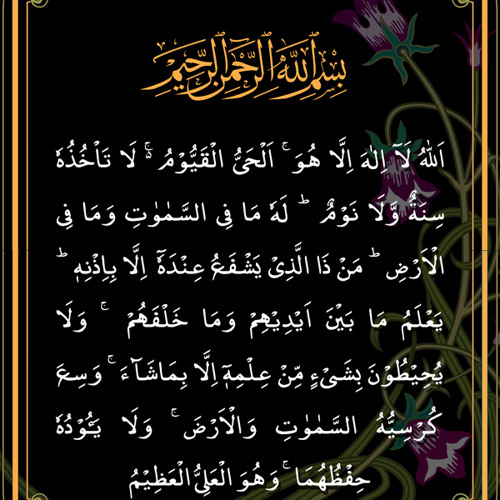 بِسْمِ اللّٰهِ الرَّحْمٰنِ الرَّحِيْمِ
اَللّٰهُ لَآ اِلٰهَ اِلَّا هُوَ ۚ اَلْحَيُّ الْقَيُّوْمُ ۬ۚ لَا تَاْخُذُهٗ
سِنَةٌ وَّلَا نَوْمٌ ؕ لَهٗ مَا فِى السَّمٰوٰتِ وَمَا فِى
الْاَرْضِ ؕ مَنْ ذَا الَّذِىْ يَشْفَعُ عِنْدَهٗٓ اِلَّا بِاِذْنِهٖ ؕ
يَعْلَمُ مَا بَيْنَ اَيْدِيْهِمْ وَمَا خَلْفَهُمْ ۚ وَلَا
يُحِيْطُوْنَ بِشَىْءٍ مِّنْ عِلْمِهٖٓ اِلَّا بِمَاشَآءَ ۚ وَسِعَ
كُرْسِيُّهُ السَّمٰوٰتِ وَالْاَرْضَ ۚ وَلَا يَـُٔوْدُهٗ
حِفْظُهُمَا ۚ وَهُوَ الْعَلِىُّ الْعَظِيْمُ